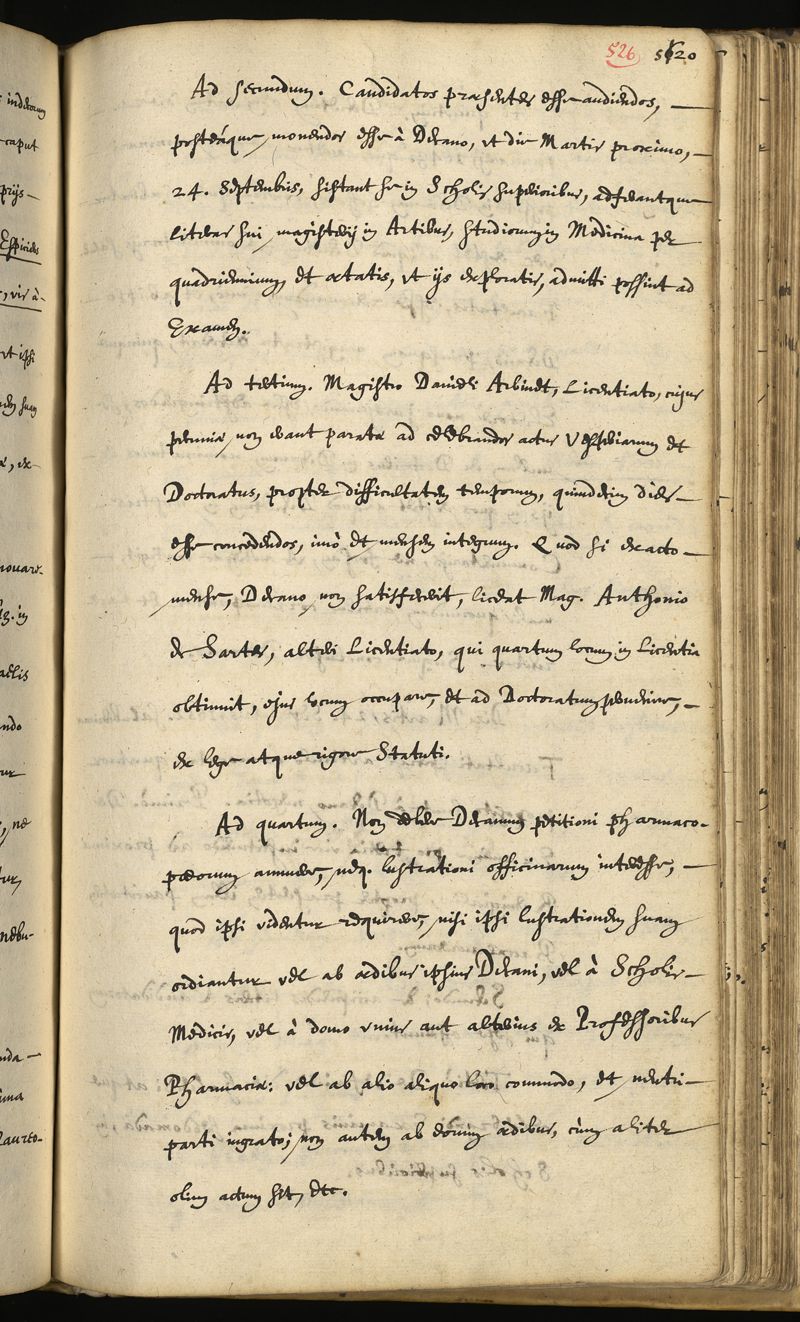 526 5620
Ad secundum. Candidatos præsentes esse audiendos,
posteáque monendos esse à Decano, vt die Martis proximo,
24. Septembris, sistant se in Scholis superioribus, adferantque
literas sui magisterij in Artibus, studiorum in Medicina per
quadriennium, et ætatis, vt ijs exploratis, admitti possint ad
Examen.
Ad tertium. Magistro Danieli Arbinet, Licentiato, cujus
pecuniæ non erant paratæ ad celebrandos actus Vesperiarum et
Doctoratus, propter difficultatem temporum, quindecim dies
esse concedendos, imò et mensem integrum. Quod si exacto
mense, Decano non satisfecerit, liceat Mag. Anthonio
de Sarte, alteri Licentiato, qui quartum locum in Licentia
obtinuit, ejus locum occupare, et ad Doctoratum pervenire,
ex lege atque rigore Statuti.
Ad quartum. Non debere Decanum petitioni pharmaco-
pœorum annuere, neq. lustrationi officinarum interesse,
quod ipsi videntur requirere, nisi ipsi lustrationem suam
ordiantur vel ab ædibus ipsius Decani, vel à Scholis
Medicis, vel à domo vnius aut alterius ex Professoribus
Pharmaciæ: vel ab alio aliquo loco commodo, et neutri
parti ingrato; non autem ab eorum ædibus, cùm aliter
olim actum sit, etc.